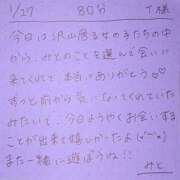 1/27 80分 T様
今日は沢山居る女の子たちの中
から、みとのことを選んで会いに
来てくれて、本当にありがとう♡
ずっと前から気になってくれていた
みたいで、今日ようやくお会いする
ことが出来て嬉しかったよ(*´ー`*)
また一緒に遊ぼうね!!
みと